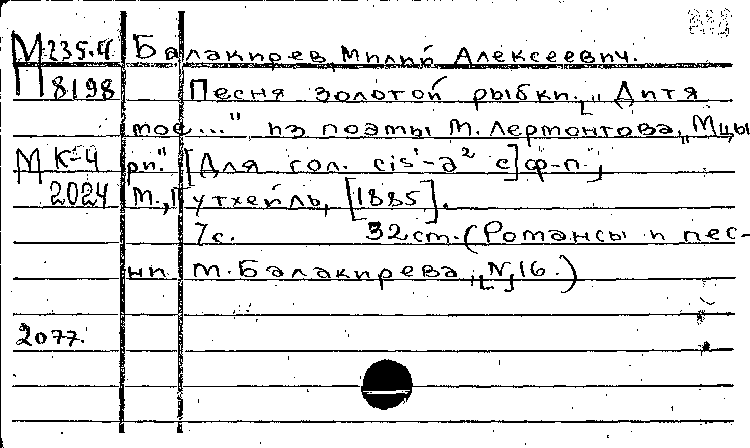 М 235.4 Балакирев, Милий Алексеевич.
П 8198 Песня золотой рыбки. „Дитя
мое..." из поэмы М. Лермонтова „Мцы
М К-4 ри". [Для гол. cis¹-a² с] ф-п.,
2024 М., Гутхейль, [1885].
7с. 32 ст. (Романсы и пес-
ни М. Балакирева, [N] 16.)
2077.